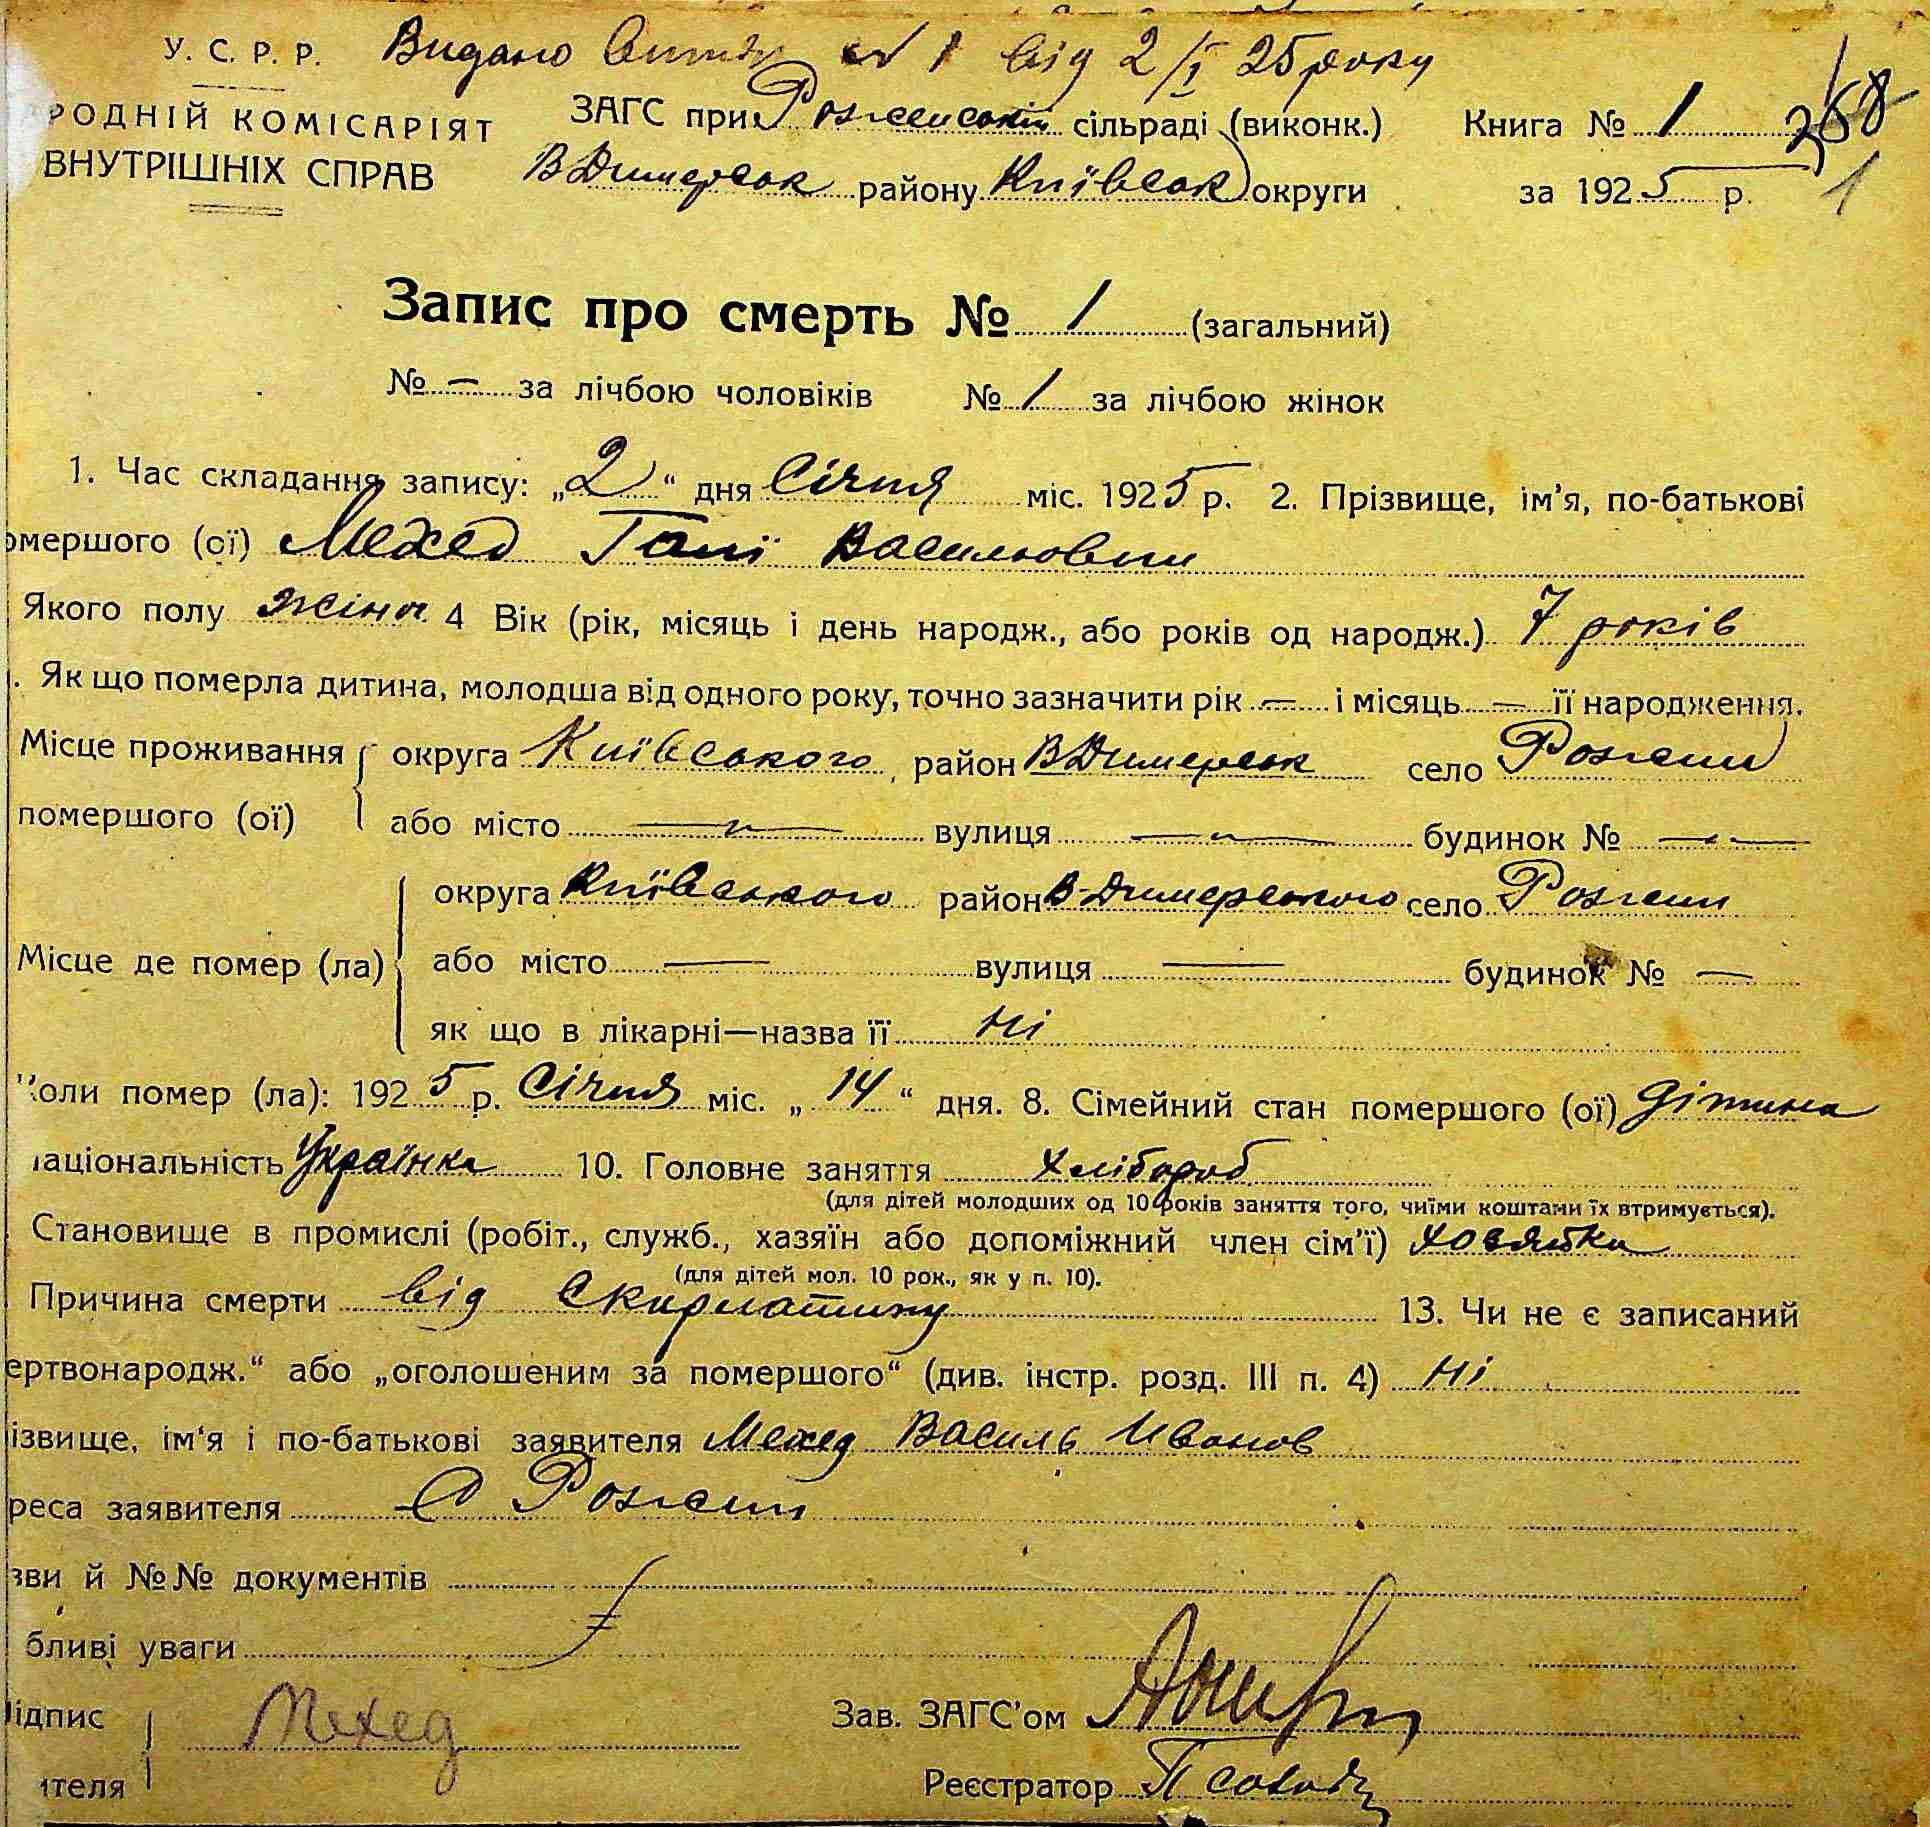 У. С. Р. Р. Видано витяг № 1 від 2/I 25 року
РОДНІЙ КОМІСАРІЯТ ЗАГС при Рожевській сільраді (виконк.) Книга № 1 268
ВНУТРІШНІХ СПРАВ ВДимерськ району Київськ округи за 1925 р. 1
Запис про смерть № 1 (загальний)
№ — за лічбою чоловіків № 1 за лічбою жінок
1. Час складання запису: „2“ дня Січня міс. 1925 р. 2. Прізвище, ім'я, по-батькові
омершого (ої) Мехед Галї Васильовни
Якого полу жіноч. 4 Вік (рік, місяць і день народж., або років од народж.) 7 років
. Як що померла дитина, молодша від одного року, точно зазначити рік — і місяць — її народження.
Місце проживання округа Київського, район ВДимерськ село Рожени
помершого (ої) або місто — вулиця — будинок № —
округа Київського район В-Димерського село Рожени
Місце де помер (ла) або місто — вулиця — будинок № —
як що в лікарні—назва її Ні
Коли помер (ла): 1925 р. Січня міс. „14“ дня. 8. Сімейний стан помершого (ої) дітина
аціональність Українка 10. Головне заняття хлібороб
(для дітей молодших од 10 років заняття того, чиїми коштами їх втримується).
Становище в промислі (робіт., служб., хазяїн або допоміжний член сім'ї) хозяйка
(для дітей мол. 10 рок., як у п. 10).
Причина смерти від Скарлатину 13. Чи не є записаний
ертвонародж.“ або „оголошеним за помершого“ (див. інстр. розд. III п. 4) Ні
ізвище, ім'я і по-батькові заявителя Мехед Василь Иванов
реса заявителя С Рожени
зви й №№ документів
бливі уваги
Підпис Мехед Зав. ЗАГС'ом
ителя Реєстратор